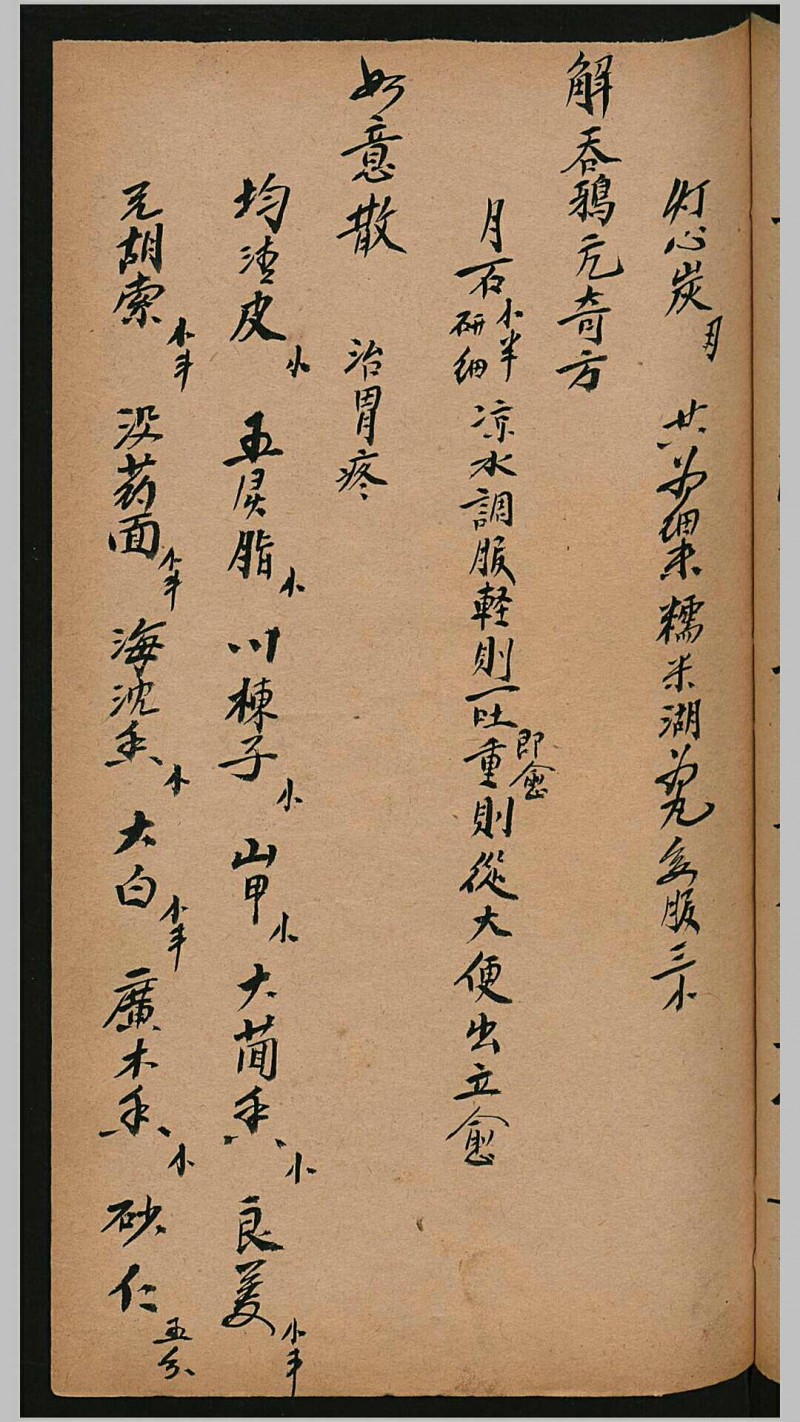 灯心炭 共为细末糯米湖为丸每服三小
解吞鸦片奇方
月石小半研细 凉水調服軽則一吐即愈重則從大便出立愈
如意散 治胃疼
均青皮小 五灵脂小 川楝子小 山甲小 大茴香小 良姜小半
元胡索小半 没药面小半 海沈香小 大白小半 廣木香小 砂仁五分